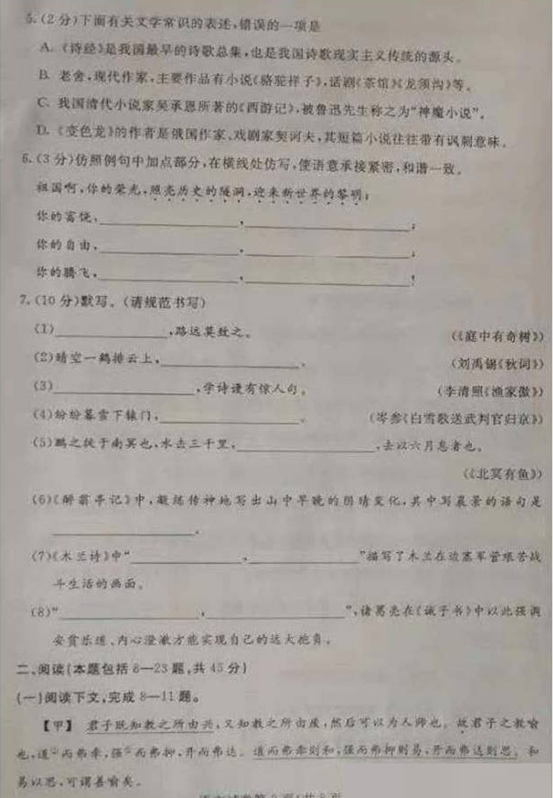 5.(2分)下面有关文学常识的表述,错误的一项是
A.《诗经》是我国最早的诗歌总集,也是我国诗歌现实主义传统的源头。
B. 老舍,现代作家,主要作品有小说《骆驼祥子》,话剧《茶馆》《龙须沟》等。
C. 我国清代小说家吴承恩所著的《西游记》,被鲁迅先生称之为“神魔小说”。
D.《变色龙》的作者是俄国作家、戏剧家契诃夫,其短篇小说往往带有讽刺意味。
6.(3分)仿照例句中加点部分,在横线处仿写,使语意承接紧密,和谐一致。
祖国啊,你的荣光,照亮历史的隧洞,迎来新世界的黎明;
你的富饶,__________,__________;
你的自由,__________,__________;
你的腾飞,__________,__________!
7.(10分)默写。(请规范书写)
(1)__________,路远莫致之。 (《庭中有奇树》)
(2)晴空一鹤排云上,__________。 (刘禹锡《秋词》)
(3)__________,学诗谩有惊人句。 (李清照《渔家傲》)
(4)纷纷暮雪下辕门,__________。 (岑参《白雪歌送武判官归京》)
(5)鹏之徙于南冥也,水击三千里,__________,去以六月息者也。
(《北冥有鱼》)
(6)《醉翁亭记》中,凝练传神地写出山中早晚的阴晴变化,其中写晨景的语句是
__________。
(7)《木兰诗》中“__________,__________”描写了木兰在边塞军营艰苦战
斗生活的画面。
(8)“__________,__________”,诸葛亮在《诫子书》中以此强调
安贫乐道、内心澄澈才能实现自己的远大抱负。
二、阅读(本题包括8—23题,共45分)
(一)阅读下文,完成8—11题。
【甲】 君子既知教之所由兴,又知教之所由废,然后可以为人师也。故君子之教喻
也,道①而弗牵,强②而弗抑,开而弗达。道而弗牵则和,强而弗抑则易,开而弗达则思。和
易以思,可谓善喻矣。